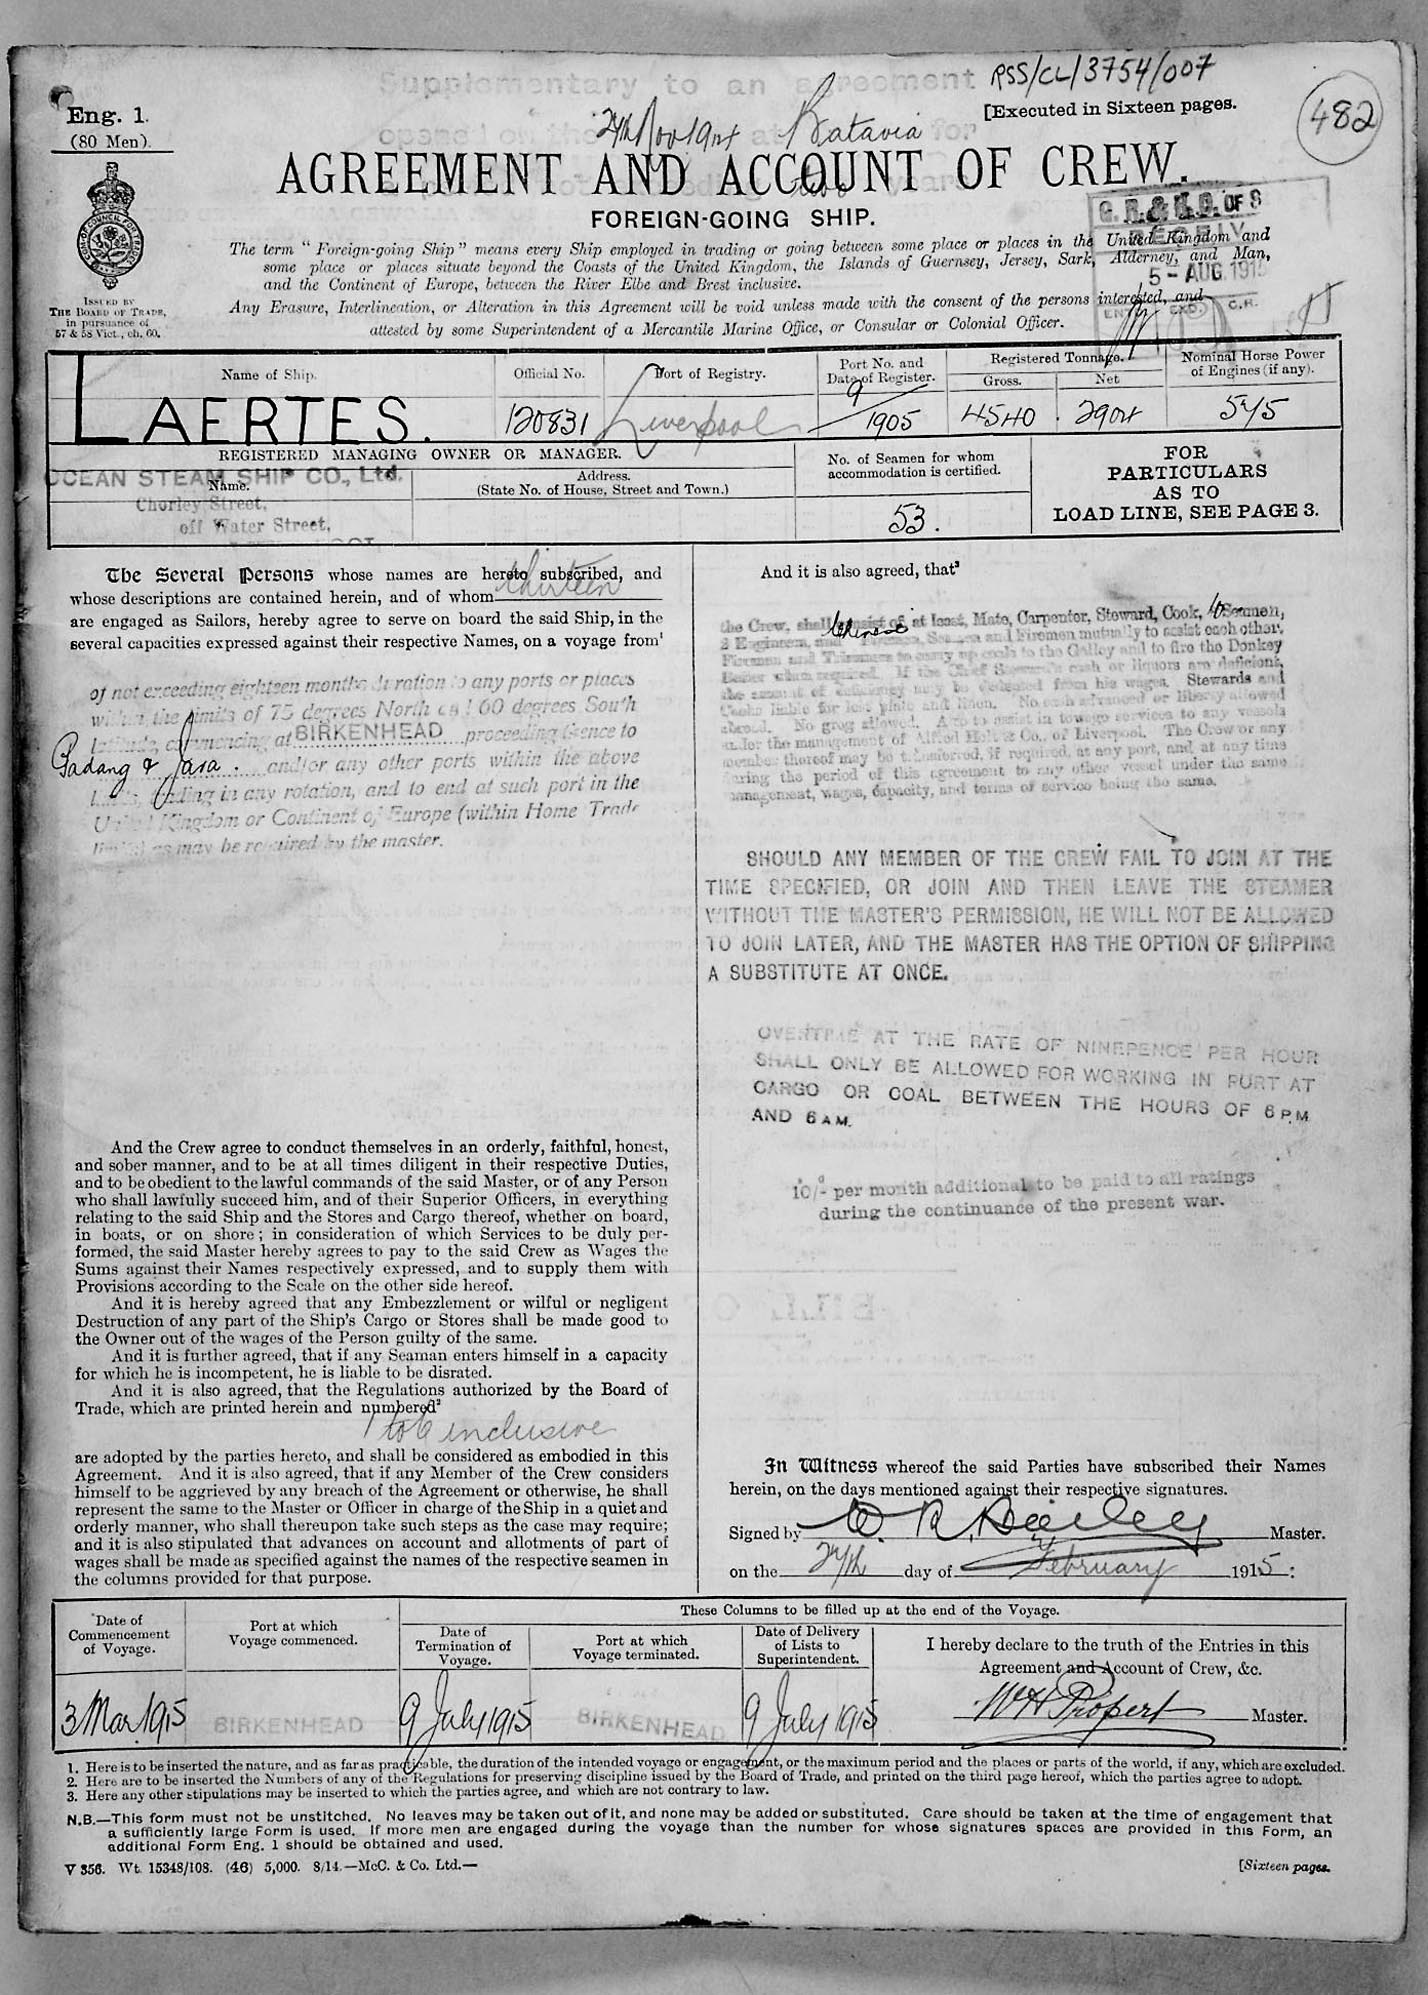 Supplementary to an agreement
RSS/CL/3754/007
[Executed in Sixteen pages.
482
Eng. 1.
(80 Men).
24th Nov 1914 at Batavia for
AGREEMENT AND ACCOUNT OF CREW.
FOREIGN-GOING SHIP.
The term "Foreign-going Ship" means every Ship employed in trading or going between some place or places in the United Kingdom and
some place or places situate beyond the Coasts of the United Kingdom, the Islands of Guernsey, Jersey, Sark, Alderney, and Man,
and the Continent of Europe, between the River Elbe and Brest inclusive.
Any Erasure, Interlineation, or Alteration in this Agreement will be void unless made with the consent of the persons interested, and
attested by some Superintendent of a Mercantile Marine Office, or Consular or Colonial Officer.
ISSUED BY
THE BOARD OF TRADE,
in pursuance of
57 & 58 Vict., ch. 60.
OF S
5 - AUG. 1915
Name of Ship.
Official No.
Port of Registry.
Port No. and
Date of Register.
Registered Tonnage.
Gross.
Net
Nominal Horse Power
of Engines (if any).
LAERTES.
120831
Liverpool
9
1905
4540
2904
545
REGISTERED MANAGING OWNER OR MANAGER.
No. of Seamen for whom
accommodation is certified.
FOR
PARTICULARS
AS TO
LOAD LINE, SEE PAGE 3.
OCEAN STEAM SHIP CO., Ltd.
Name.
Address.
(State No. of House, Street and Town.)
Chorley Street,
off Water Street,
53.
The Several Persons whose names are hereto subscribed, and
whose descriptions are contained herein, and of whom thirteen
are engaged as Sailors, hereby agree to serve on board the said Ship, in the
several capacities expressed against their respective Names, on a voyage from¹
of not exceeding eighteen months duration to any ports or places
within the limits of 75 degrees North and 60 degrees South
latitude, commencing at BIRKENHEAD proceeding thence to
Padang & Java. and/or any other ports within the above
limits, trading in any rotation, and to end at such port in the
United Kingdom or Continent of Europe (within Home Trade
limits) as may be required by the master.
And the Crew agree to conduct themselves in an orderly, faithful, honest,
and sober manner, and to be at all times diligent in their respective Duties,
and to be obedient to the lawful commands of the said Master, or of any Person
who shall lawfully succeed him, and of their Superior Officers, in everything
relating to the said Ship and the Stores and Cargo thereof, whether on board,
in boats, or on shore; in consideration of which Services to be duly per-
formed, the said Master hereby agrees to pay to the said Crew as Wages the
Sums against their Names respectively expressed, and to supply them with
Provisions according to the Scale on the other side hereof.
And it is hereby agreed that any Embezzlement or wilful or negligent
Destruction of any part of the Ship's Cargo or Stores shall be made good to
the Owner out of the wages of the Person guilty of the same.
And it is further agreed, that if any Seaman enters himself in a capacity
for which he is incompetent, he is liable to be disrated.
And it is also agreed, that the Regulations authorized by the Board of
Trade, which are printed herein and numbered²
1 to 6 inclusive
are adopted by the parties hereto, and shall be considered as embodied in this
Agreement. And it is also agreed, that if any Member of the Crew considers
himself to be aggrieved by any breach of the Agreement or otherwise, he shall
represent the same to the Master or Officer in charge of the Ship in a quiet and
orderly manner, who shall thereupon take such steps as the case may require;
and it is also stipulated that advances on account and allotments of part of
wages shall be made as specified against the names of the respective seamen in
the columns provided for that purpose.
And it is also agreed, that³
the Crew, shall consist of, at least, Mate, Carpenter, Steward, Cook, 10 Seamen,
2 Engineers, and Chinese Firemen, Seamen and Firemen mutually to assist each other.
Firemen and Trimmers to carry up coals to the Galley and to fire the Donkey
Boiler when required. If the Chief Steward's cash or liquors are deficient,
the amount of deficiency may be deducted from his wages. Stewards and
Cooks liable for lost plate and linen. No cash advanced or liberty allowed
abroad. No grog allowed. Also to assist in towage services to any vessels
under the management of Alfred Holt & Co., of Liverpool. The Crew or any
member thereof may be transferred, if required, at any port, and at any time
during the period of this agreement to any other vessel under the same
management, wages, capacity, and terms of service being the same.
SHOULD ANY MEMBER OF THE CREW FAIL TO JOIN AT THE
TIME SPECIFIED, OR JOIN AND THEN LEAVE THE STEAMER
WITHOUT THE MASTER'S PERMISSION, HE WILL NOT BE ALLOWED
TO JOIN LATER, AND THE MASTER HAS THE OPTION OF SHIPPING
A SUBSTITUTE AT ONCE.
OVERTIME AT THE RATE OF NINEPENCE PER HOUR
SHALL ONLY BE ALLOWED FOR WORKING IN PORT AT
CARGO OR COAL BETWEEN THE HOURS OF 6 PM
AND 6 AM.
10/- per month additional to be paid to all ratings
during the continuance of the present war.
In Witness whereof the said Parties have subscribed their Names
herein, on the days mentioned against their respective signatures.
Signed by W. R. Bailey Master.
on the 27th day of February 1915:
Date of
Commencement
of Voyage.
Port at which
Voyage commenced.
These Columns to be filled up at the end of the Voyage.
Date of
Termination of
Voyage.
Port at which
Voyage terminated.
Date of Delivery
of Lists to
Superintendent.
I hereby declare to the truth of the Entries in this
Agreement and Account of Crew, &c.
3 Mar 1915
BIRKENHEAD
9 July 1915
BIRKENHEAD
9 July 1915
WH Propert Master.
1. Here is to be inserted the nature, and as far as practicable, the duration of the intended voyage or engagement, or the maximum period and the places or parts of the world, if any, which are excluded.
2. Here are to be inserted the Numbers of any of the Regulations for preserving discipline issued by the Board of Trade, and printed on the third page hereof, which the parties agree to adopt.
3. Here any other stipulations may be inserted to which the parties agree, and which are not contrary to law.
N.B.—This form must not be unstitched. No leaves may be taken out of it, and none may be added or substituted. Care should be taken at the time of engagement that
a sufficiently large Form is used. If more men are engaged during the voyage than the number for whose signatures spaces are provided in this Form, an
additional Form Eng. 1 should be obtained and used.
V 356. Wt. 15348/108. (46) 5,000. 8/14.—McC. & Co. Ltd.—
[Sixteen pages.